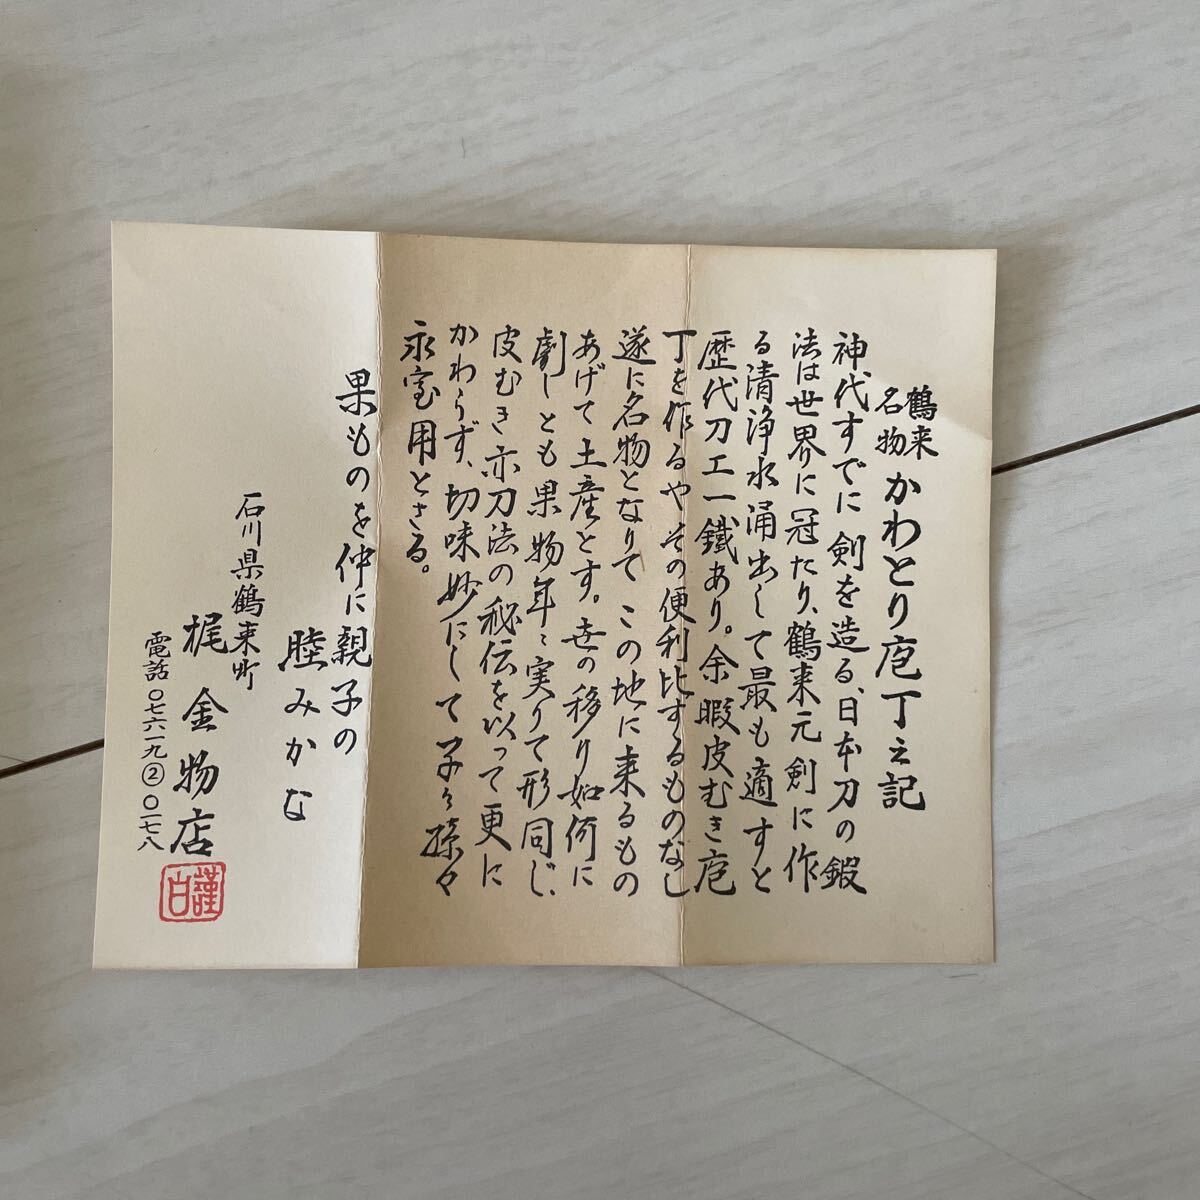 鶴来名物 かわとり庖丁之記
神代すでに剣を造る、日本刀の鍜
法は世界に冠たり、鶴来元剣に作
る清浄水涌出して最も適すと
歴代刀工一鐵あり。余暇皮むき庖
丁を作るやその便利比するものなし
遂に名物となりてこの地に来るもの
あげて土産とす。世の移り如何に
劇しとも果物年々実りて形同じ、
皮むき亦刀法の秘伝を以って更に
かわらず、切味妙にして子々孫々
永宝用とさる。
果ものを仲に親子の
睦みかな
石川県鶴来町
梶金物店
電話〇七六一九②〇一七八
謹白